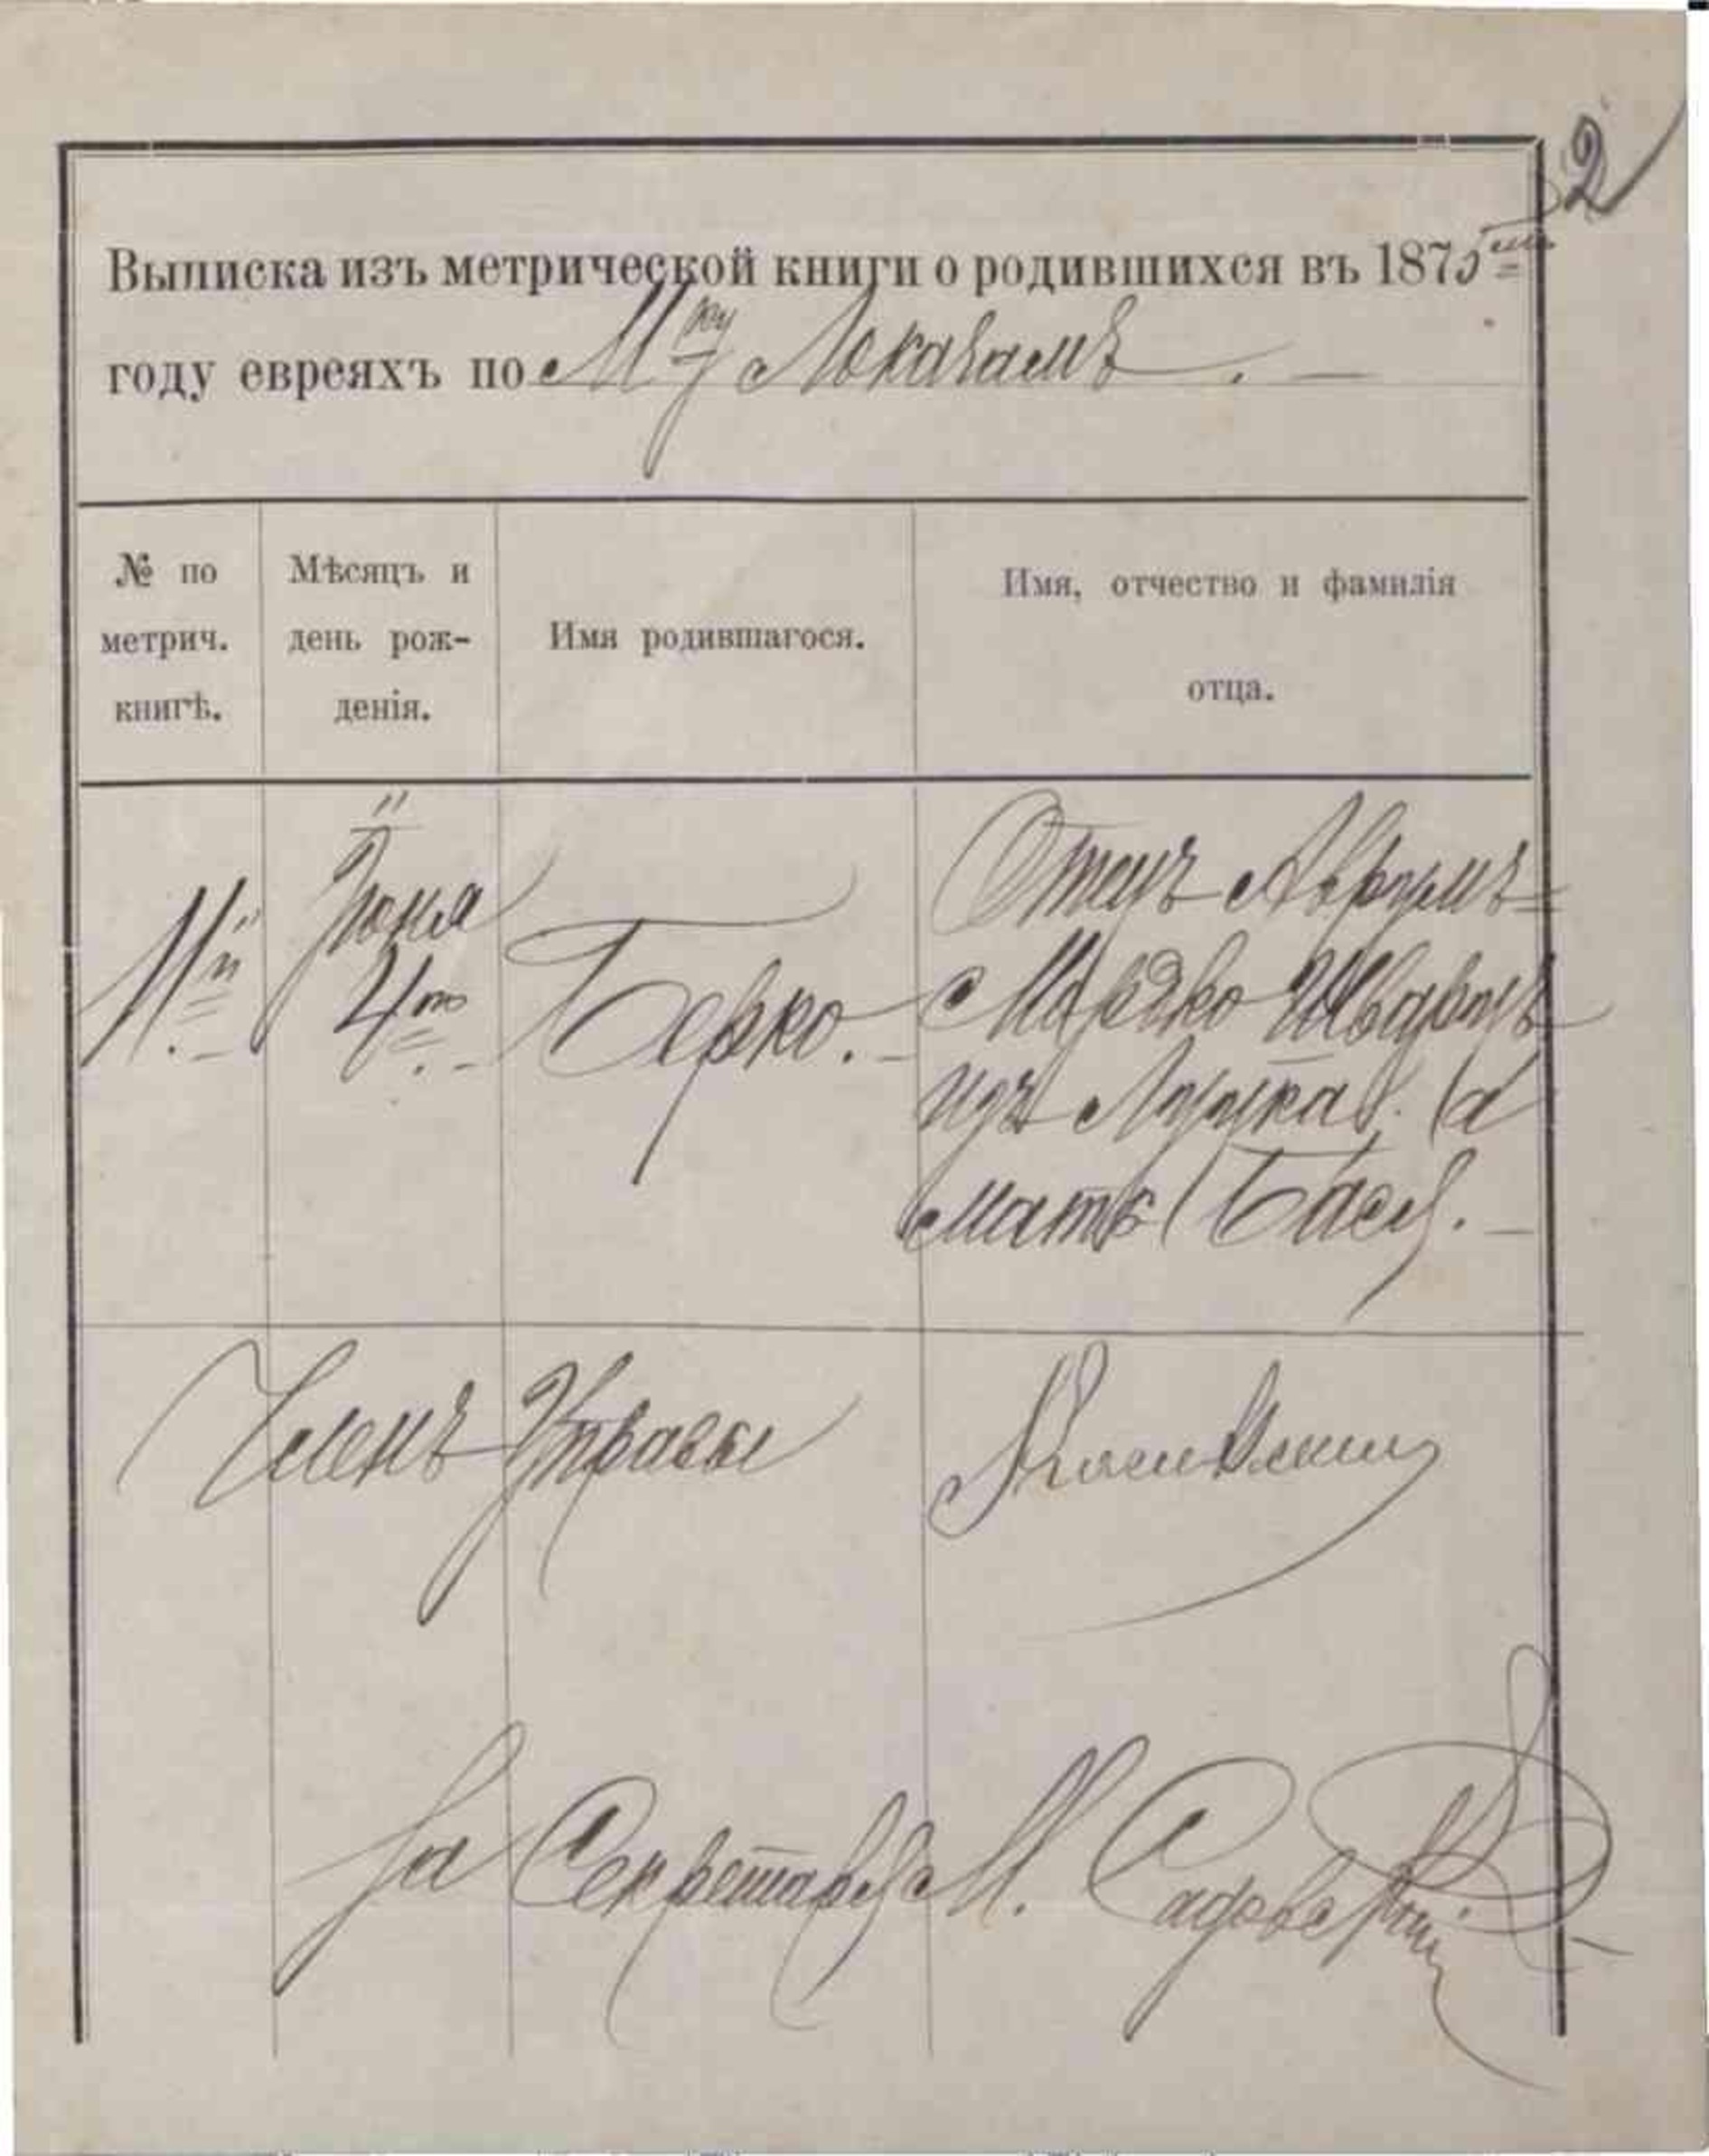 2
Выписка изъ метрической книги о родившихся въ 1875мъ
году евреяхъ по Мку Локачамъ. —
№ по
метрич.
книгѣ.
Мѣсяцъ и
день рож-
денія.
Имя родившагося.
Имя, отчество и фамилія
отца.
11й.-
Іюня
4го.-
Берко.-
Отецъ Аврумъ=
Мордко Шварцъ
изъ Луцка. (а
мать) Бася. —
Членъ Управы
За Секретаря М. Садовскій